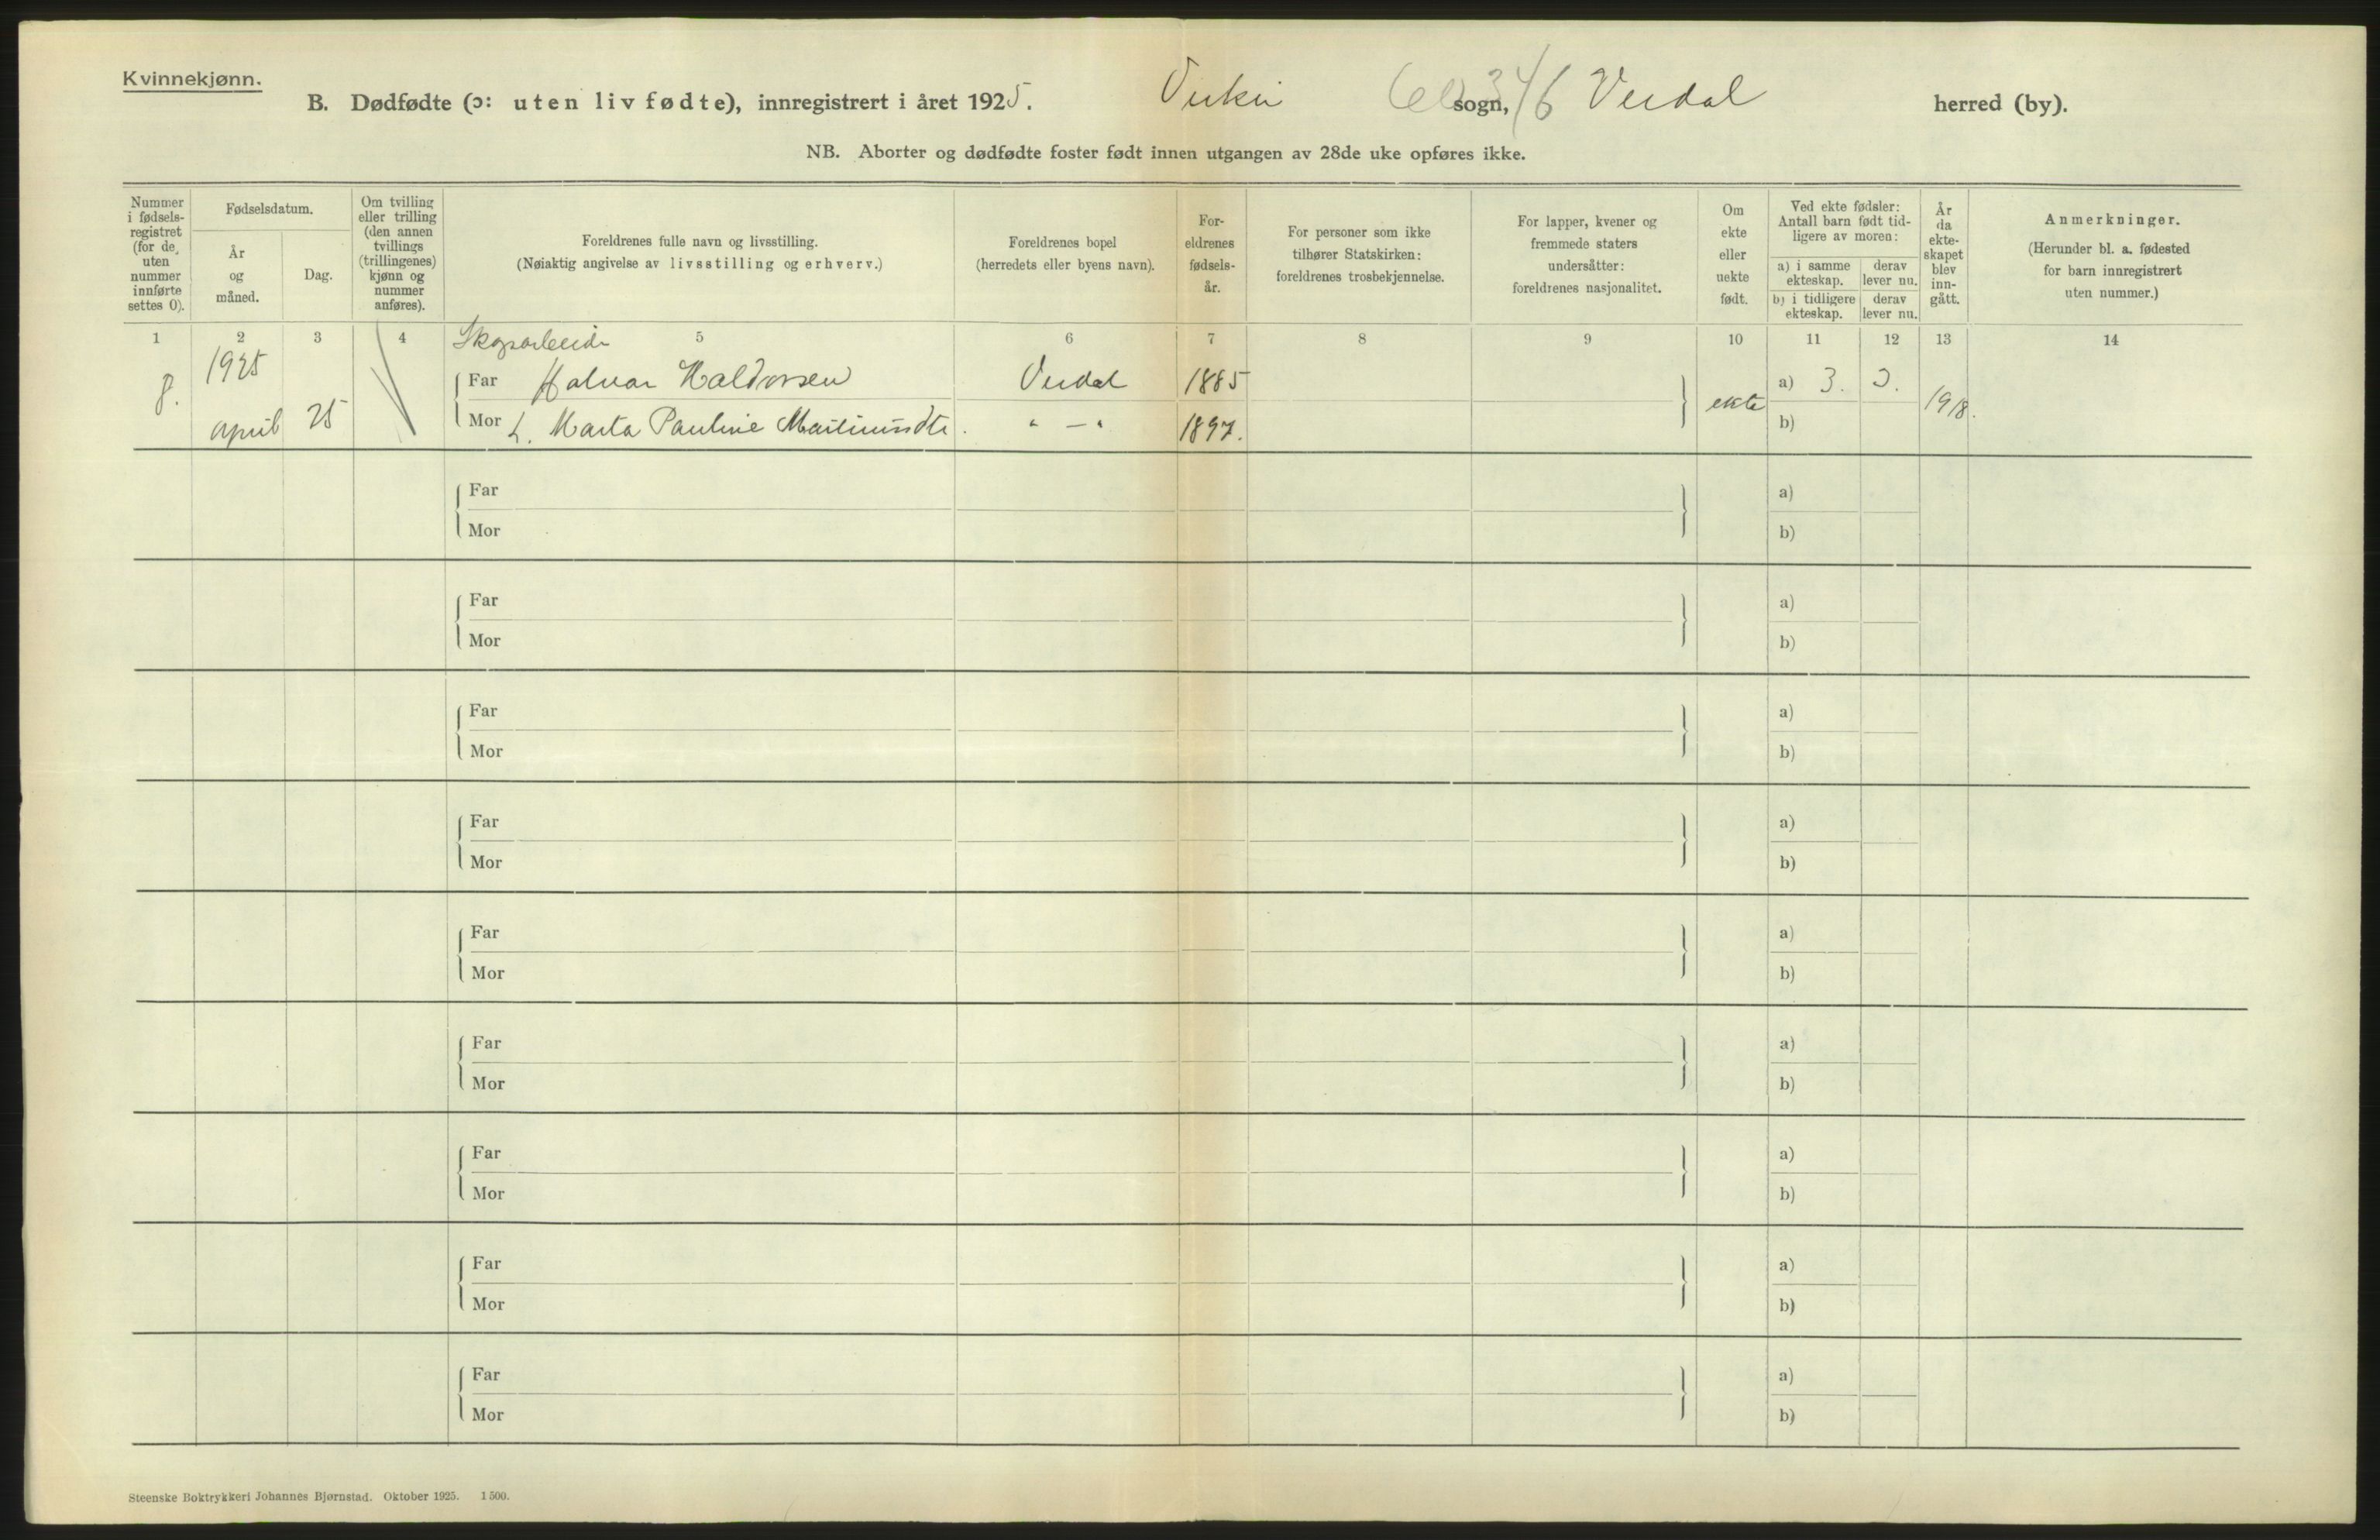 Kvinnekjønn.
B. Dødfødte (ɔ: uten liv fødte), innregistrert i året 1925. sogn, Verdal herred (by).
NB. Aborter og dødfødte foster født innen utgangen av 28de uke opføres ikke.
Nummer i fødsels- registret (for de uten nummer innførte settes 0).
Fødselsdatum.
År og måned.
Dag.
Om tvilling eller trilling (den annen tvillings (trillingenes) kjønn og nummer anføres).
Foreldrenes fulle navn og livsstilling.
(Nøiaktig angivelse av livsstilling og erhverv.)
Foreldrenes bopel
(herredets eller byens navn).
For- eldrenes fødsels- år.
For personer som ikke tilhører Statskirken: foreldrenes trosbekjennelse.
For lapper, kvener og fremmede staters undersåtter: foreldrenes nasjonalitet.
Om ekte eller uekte født.
Ved ekte fødsler: Antall barn født tid- ligere av moren:
a) i samme ekteskap.
derav lever nu.
b) i tidligere ekteskap.
derav lever nu.
År da ekte- skapet blev inn- gått.
Anmerkninger.
(Herunder bl. a. fødested for barn innregistrert uten nummer.)
1 2 3 4 5 6 7 8 9 10 11 12 13 14
Skogsarbeider
8. 1925 april 25
Far Halvar Haldorsen Verdal 1885
Mor Marta Pauline 1897.
ekte a) 3. 3. 1918.
b)
Far a)
Mor b)
Far a)
Mor b)
Far a)
Mor b)
Far a)
Mor b)
Far a)
Mor b)
Far a)
Mor b)
Far a)
Mor b)
Far a)
Mor b)
Far a)
Mor b)
Steenske Boktrykkeri Johannes Bjørnstad. Oktober 1925. 1500.